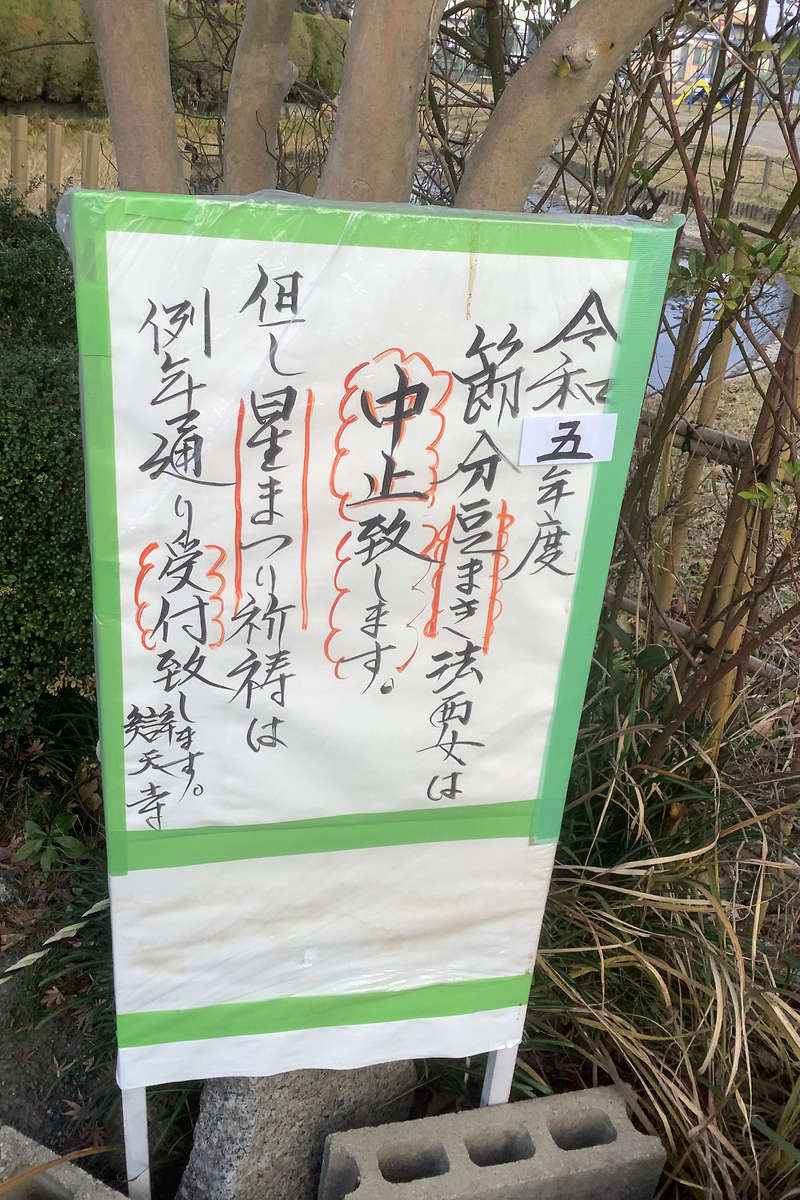 令和五年度
節分豆まき法要は
中止致します。
但し星まつり祈祷は
例年通り受付致します。
辯天寺